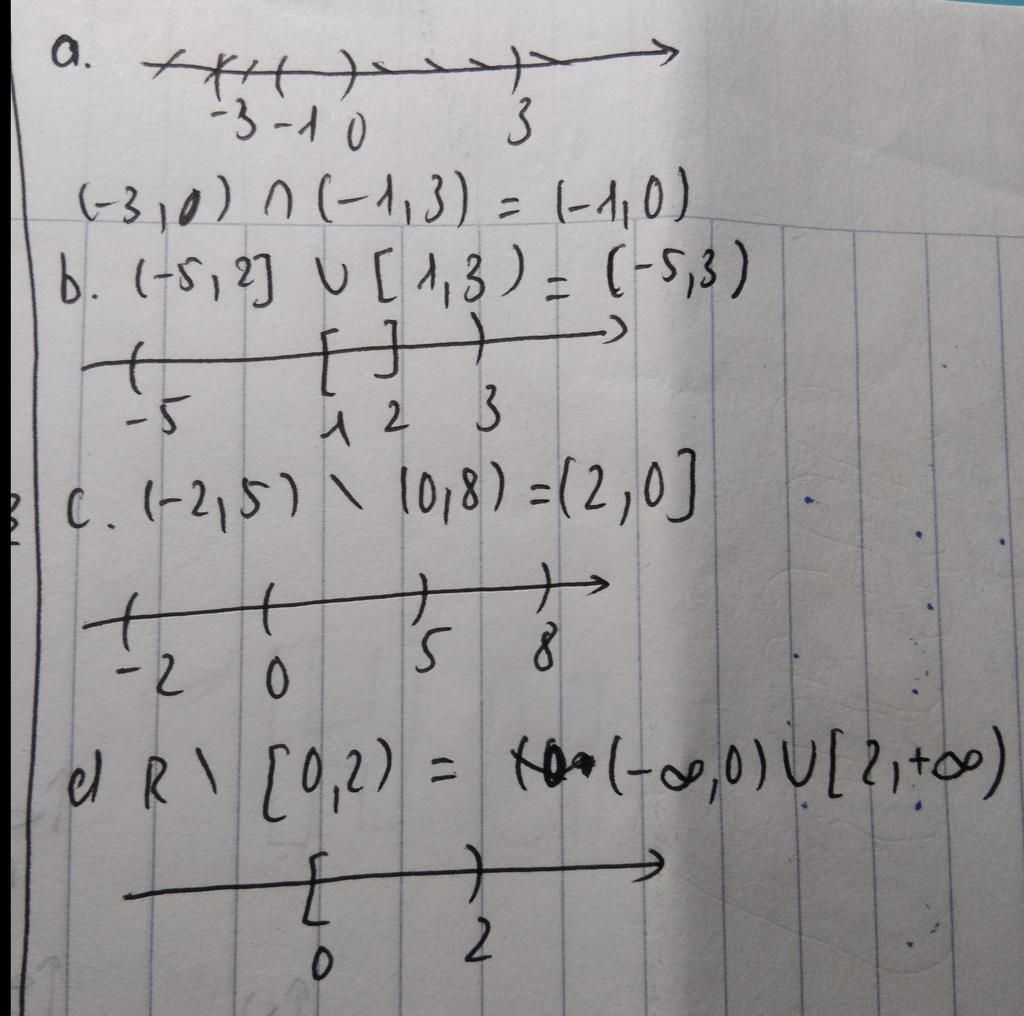 a.
-3 -1 0 3
(-3,0) ∩ (-1,3) = (-1,0)
b. (-5,2] ∪ [1,3) = (-5,3)
-5 1 2 3
c. (-2,5) \ (0,8) = (2,0]
-2 0 5 8
d R \ [0,2) = (-∞,0) ∪ [2,+∞)
0 2